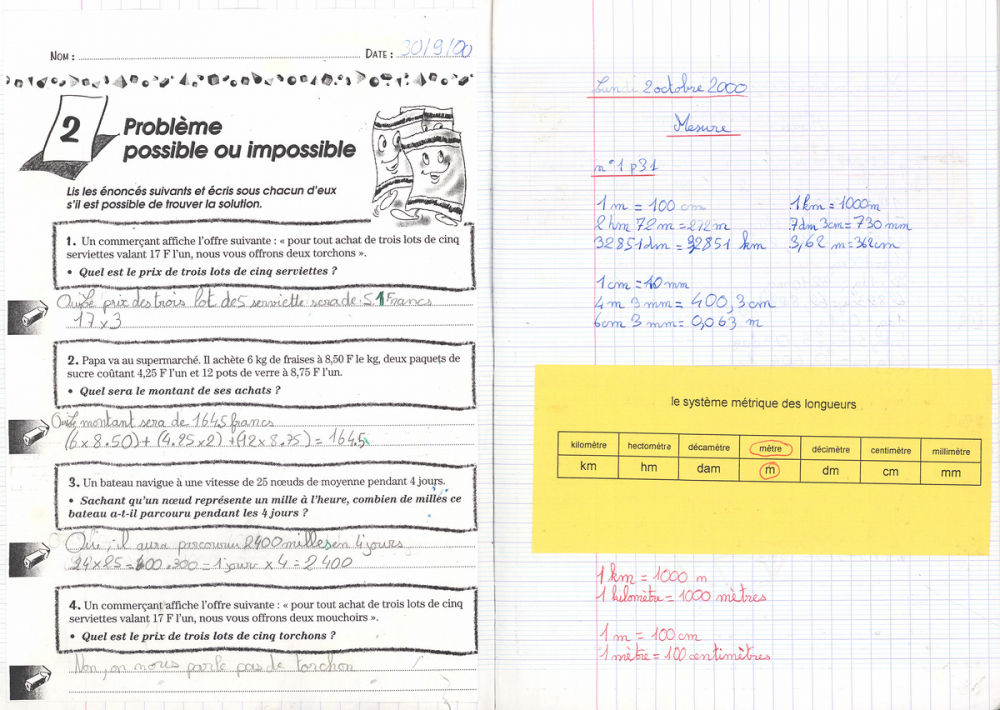 NOM : DATE : 30/9/00
2
Problème
possible ou impossible
Lis les énoncés suivants et écris sous chacun d'eux
s'il est possible de trouver la solution.
1. Un commerçant affiche l'offre suivante : « pour tout achat de trois lots de cinq
serviettes valant 17 F l'un, nous vous offrons deux torchons ».
• Quel est le prix de trois lots de cinq serviettes ?
Oui Le prix des trois lot de 5 serviette sera de 51 Francs
17 x 3
2. Papa va au supermarché. Il achète 6 kg de fraises à 8,50 F le kg, deux paquets de
sucre coûtant 4,25 F l'un et 12 pots de verre à 8,75 F l'un.
• Quel sera le montant de ses achats ?
Oui Le montant sera de 164.5 francs
(6 x 8.50) + (4.25 x 2) + (12 x 8.75) = 164.5
3. Un bateau navigue à une vitesse de 25 nœuds de moyenne pendant 4 jours.
• Sachant qu'un nœud représente un mille à l'heure, combien de milles ce
bateau a-t-il parcouru pendant les 4 jours ?
Oui, il aura parcouru 2400 milles en 4 jours
24 x 25 = 600 = 1 jour x 4 = 2400
4. Un commerçant affiche l'offre suivante : « pour tout achat de trois lots de cinq
serviettes valant 17 F l'un, nous vous offrons deux mouchoirs ».
• Quel est le prix de trois lots de cinq torchons ?
Non, on nous parle pas de torchon
Lundi 2 octobre 2000
Mesure
n°1 p31
1 m = 100 cm 1 km = 1000 m
2 hm 72 m = 272 m 7 dm 3 cm = 730 mm
32851 dm = 3,2851 km 3,62 m = 362 cm
1 cm = 10 mm
4 m 3 mm = 400,3 cm
6 cm 3 mm = 0,063 m
le système métrique des longueurs
kilomètre hectomètre décamètre mètre décimètre centimètre millimètre
km hm dam m dm cm mm
1 km = 1000 m
1 kilomètre = 1000 mètres
1 m = 100 cm
1 mètre = 100 centimètres